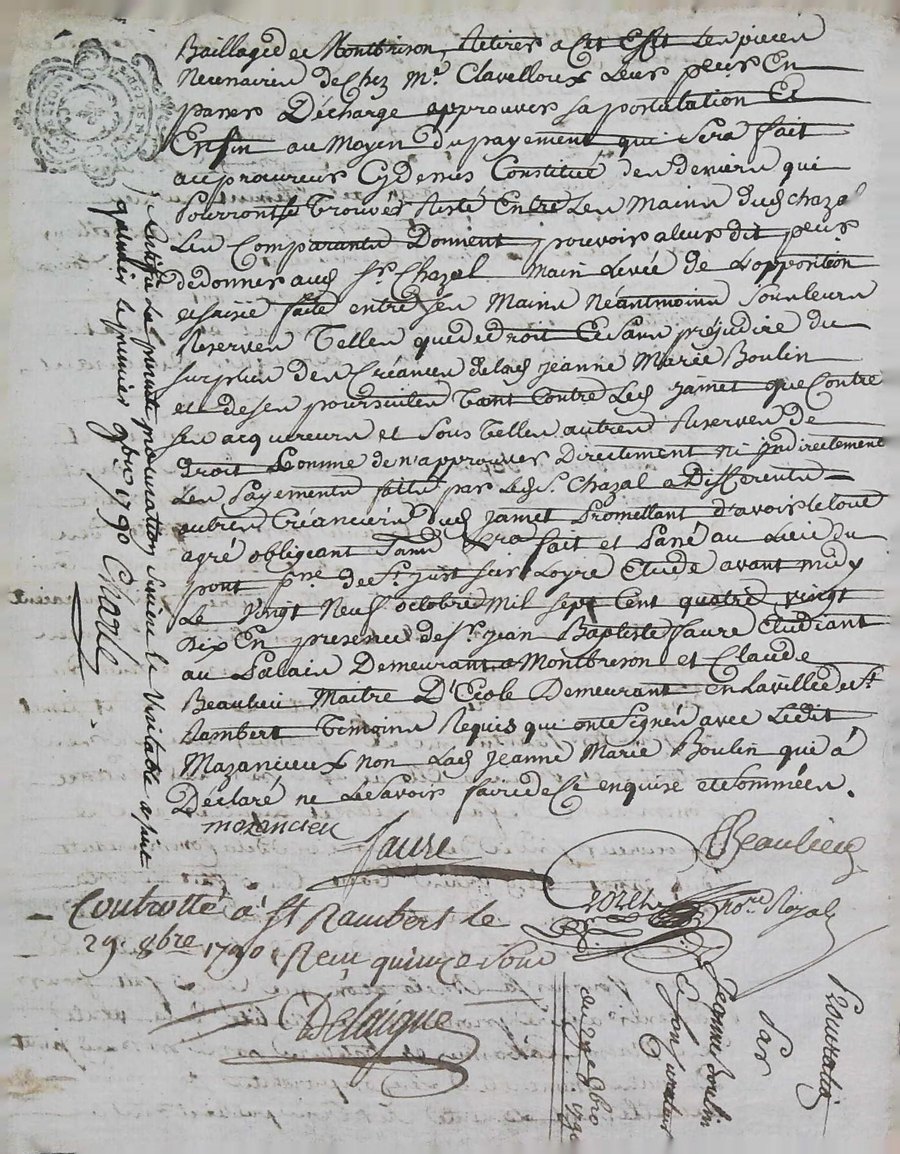 Baillage de Montbrison, Retirer a cet Effet Les pieces
Necessaires de Chez Me. Clavelloux Leur payer En
passer Décharge approuver sa postulation Et
Enfin au Moyen du payement qui sera fait
au procureur Cydessus Constitué des deniers qui
pourront se Trouver Resté Entre Les Mains dud chazal
Les Comparants Donnent pouvoir a leur dit
de donner aud Sr. Chazal Main Levée de L'opposition
et saisie faite entre ses Mains Néantmoins sous leurs
Reserves Telles que de droit Et sans préjudice du
surplus des Créances de lad jeanne Marie Boulin
et de ses poursuites tant Contre Led jamet que Contre
ses acquereurs et sous telles autres Reserves de
droit Comme de n'approuver Directement ni Indirectement
Les payements faits par Led Sr. Chazal a Differents
autres Créanciers dud jamet Promettant d'avoir le tout
agré obligeant fait et passé au Lieu du
pont de St. just sur Loyre Etude avant midy
Le Vingt Neuf octobre Mil sept Cent quatre vingt
Dix En presence de Sr. jean Baptiste faure Etudiant
au Palais Demeurant a Montbrison et Claude
Beaulieu Maitre D'Ecole Demeurant En la ville de St.
Rambert Témoins Requis qui ont signés avec Ledit
Mazancieux non Lad jeanne Marie Boulin qui a
Déclaré ne Le savoir faire de Ce enquise et sommée.
mozancieu
faure
Beaulieu
Crozet
nore. Royal
Controllé à St Rambert le
29. 8bre 1790 Reçu quinze sous
Delaigue
Certifiée La presente procuration sincere et Veritable a saint
galmier le premier 9bre 1790 Chazal
Procuration
Par
Jeanne Boulin
Et son curateur
du 29e 8bre
1790